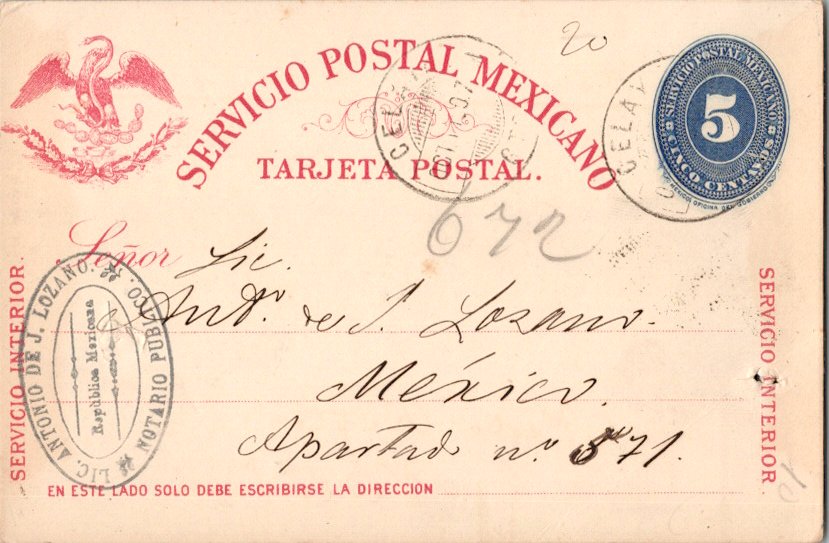 20
SERVICIO POSTAL MEXICANO
TARJETA POSTAL.
SERVICIO POSTAL MEXICANO
5
CINCO CENTAVOS
CELAYA
672
Señor Lic.
Anto. de J. Lozano.
México.
Apartado no. 571.
SERVICIO INTERIOR.
SERVICIO INTERIOR.
LIC. ANTONIO DE J. LOZANO.
NOTARIO PUBLICO.
República Mexicana
EN ESTE LADO SOLO DEBE ESCRIBIRSE LA DIRECCION